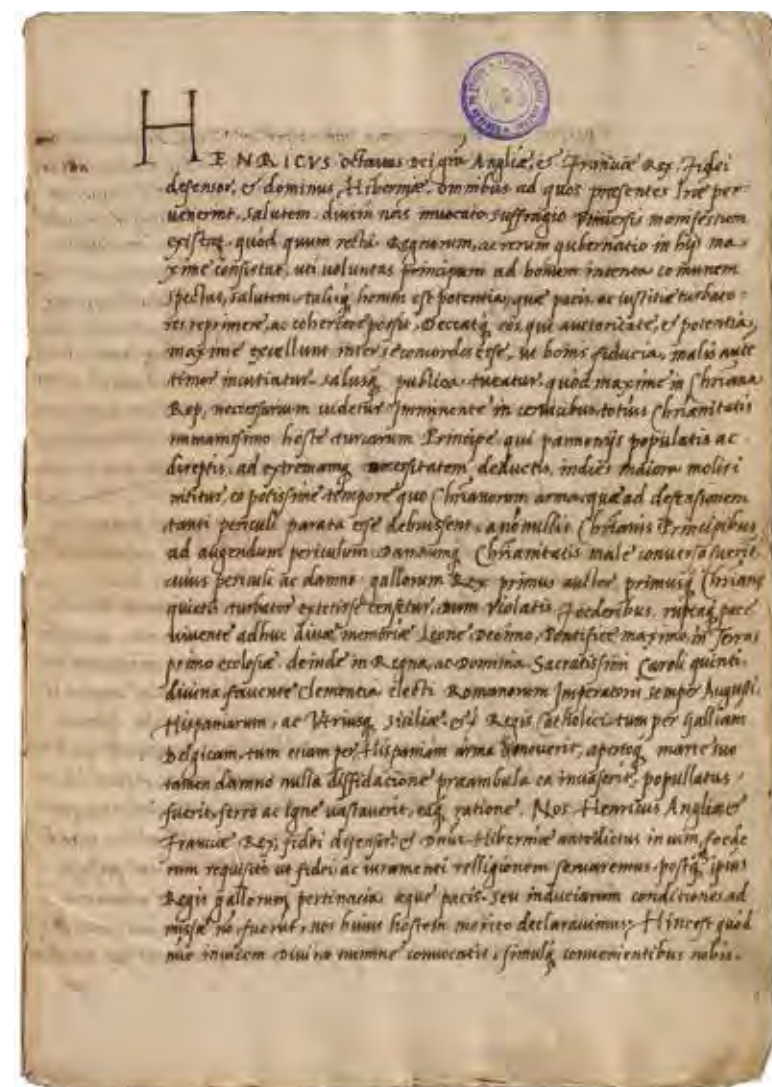 HENRICVS octauus dei gra Angliæ, & Franciæ Rex. Fidei
defensor, & dominus Hiberniæ. omnibus ad quos præsentes lræ per
uenerint, salutem. diuini nris inuocato suffragio Vniuersis
quod quum recta Regnorum, ac rerum gubernatio in hijs ma
xime consistat, uti uoluntas principum ad bonum intenta comunem
spectat, salutem, talisq, potentia, que pacis, ac iustitiæ turbato
res reprimere, ac cohercere possit. Deceatq, eos qui auctoritate, & potentia,
maxime excellunt inter se concordes esse, ut bonis fiducia, malis aute
timor incutiatur. salusq, publica tueatur. quod maxime in Chriana
Rep, necessarium uidetur Imminente in ceruicibus totius Chrianitatis
immanissimo hoste turcarum Principe qui pannonijs populatis ac
direptis, ad extremamq, necessitatem deductis, indies maiora moliri
nititur, eo potissime tempore quo Chrianorum arma, quæ ad defensionem
tanti periculi parata esse debuissent, a nonullis Chrianis Principibus
ad augendum periculum, Damnumq, Chrianitatis male conuersa fuerit.
cuius periculi ac damni gallorum Rex primus auctor primusq, Chriane
quietis turbator extetisse censetur, Dum Violatis Foederibus, ruptaq, pace
uiuente adhuc diuæ memoriæ Leone Decimo, Pontifice maximo, in Terras
primo ecclesiæ, deinde in Regna, ac Dominia Sacratissimi Caroli quinti.
diuina fauente clementia electi Romanorum Imperatoris semper Augusti.
Hispaniarum, ac Vtriusq, siciliæ & Regis Catholici, tum per Galliam
Belgicam, tum etiam per Hispaniam arma, apertoq, marte suo
tamen damno nulla diffidacione præambula ea inuaserit, popullatus
fuerit, ferro ac Igne uastauerit, eaq, ratione. Nos Henricus Angliæ &
Franciæ Rex, fidei defensor, & Dnus Hiberniæ antedictus in uim foede
rum requisiti ut fidei ac iuramenti relligionem seruaremus, postq, ipsius
Regis gallorum pertinacia, æque pacis seu induciarum conditiones ad
missæ no fuerut, nos huius hostem merito declarauimus, Hinc est quod
inuicem Diuino numine conuocatis, simulq, conuenientibus nobis.